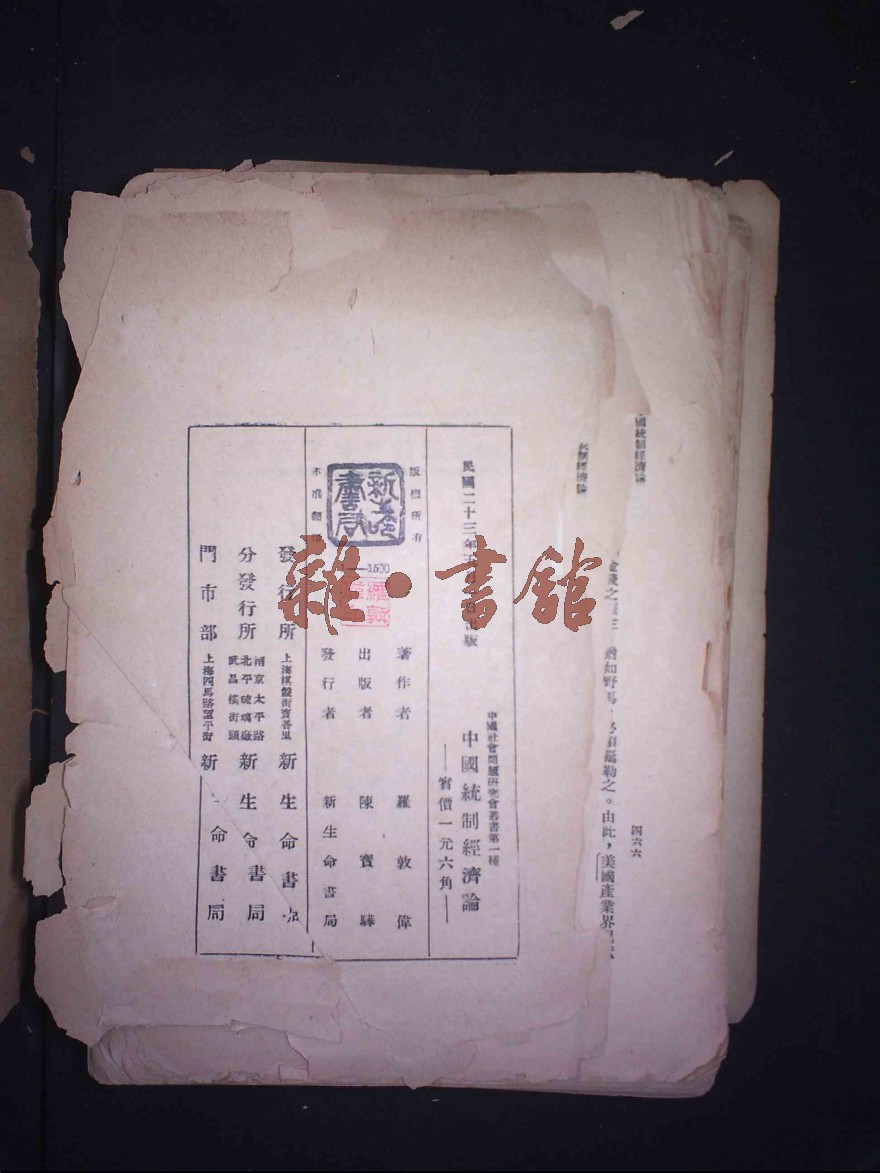 國統制經濟論
四六六
猶如野馬
勒之。由此，美國產業界
制經濟論
中國社會問題研究會叢書第一種
中國統制經濟論
——實價一元六角——
民國二十三年
版
版權所有
不准翻印
新生命書局
1—1500
羅敦
著作者 羅敦偉
出版者 陳寶驊
發行者 新生命書局
發行所 上海棋盤街寶善里 新生命書局
分發行所 南京太平路 北平琉璃廠 武昌橫街頭 新生命書局
門市部 上海四馬路望平街 新生命書局
雜·書館